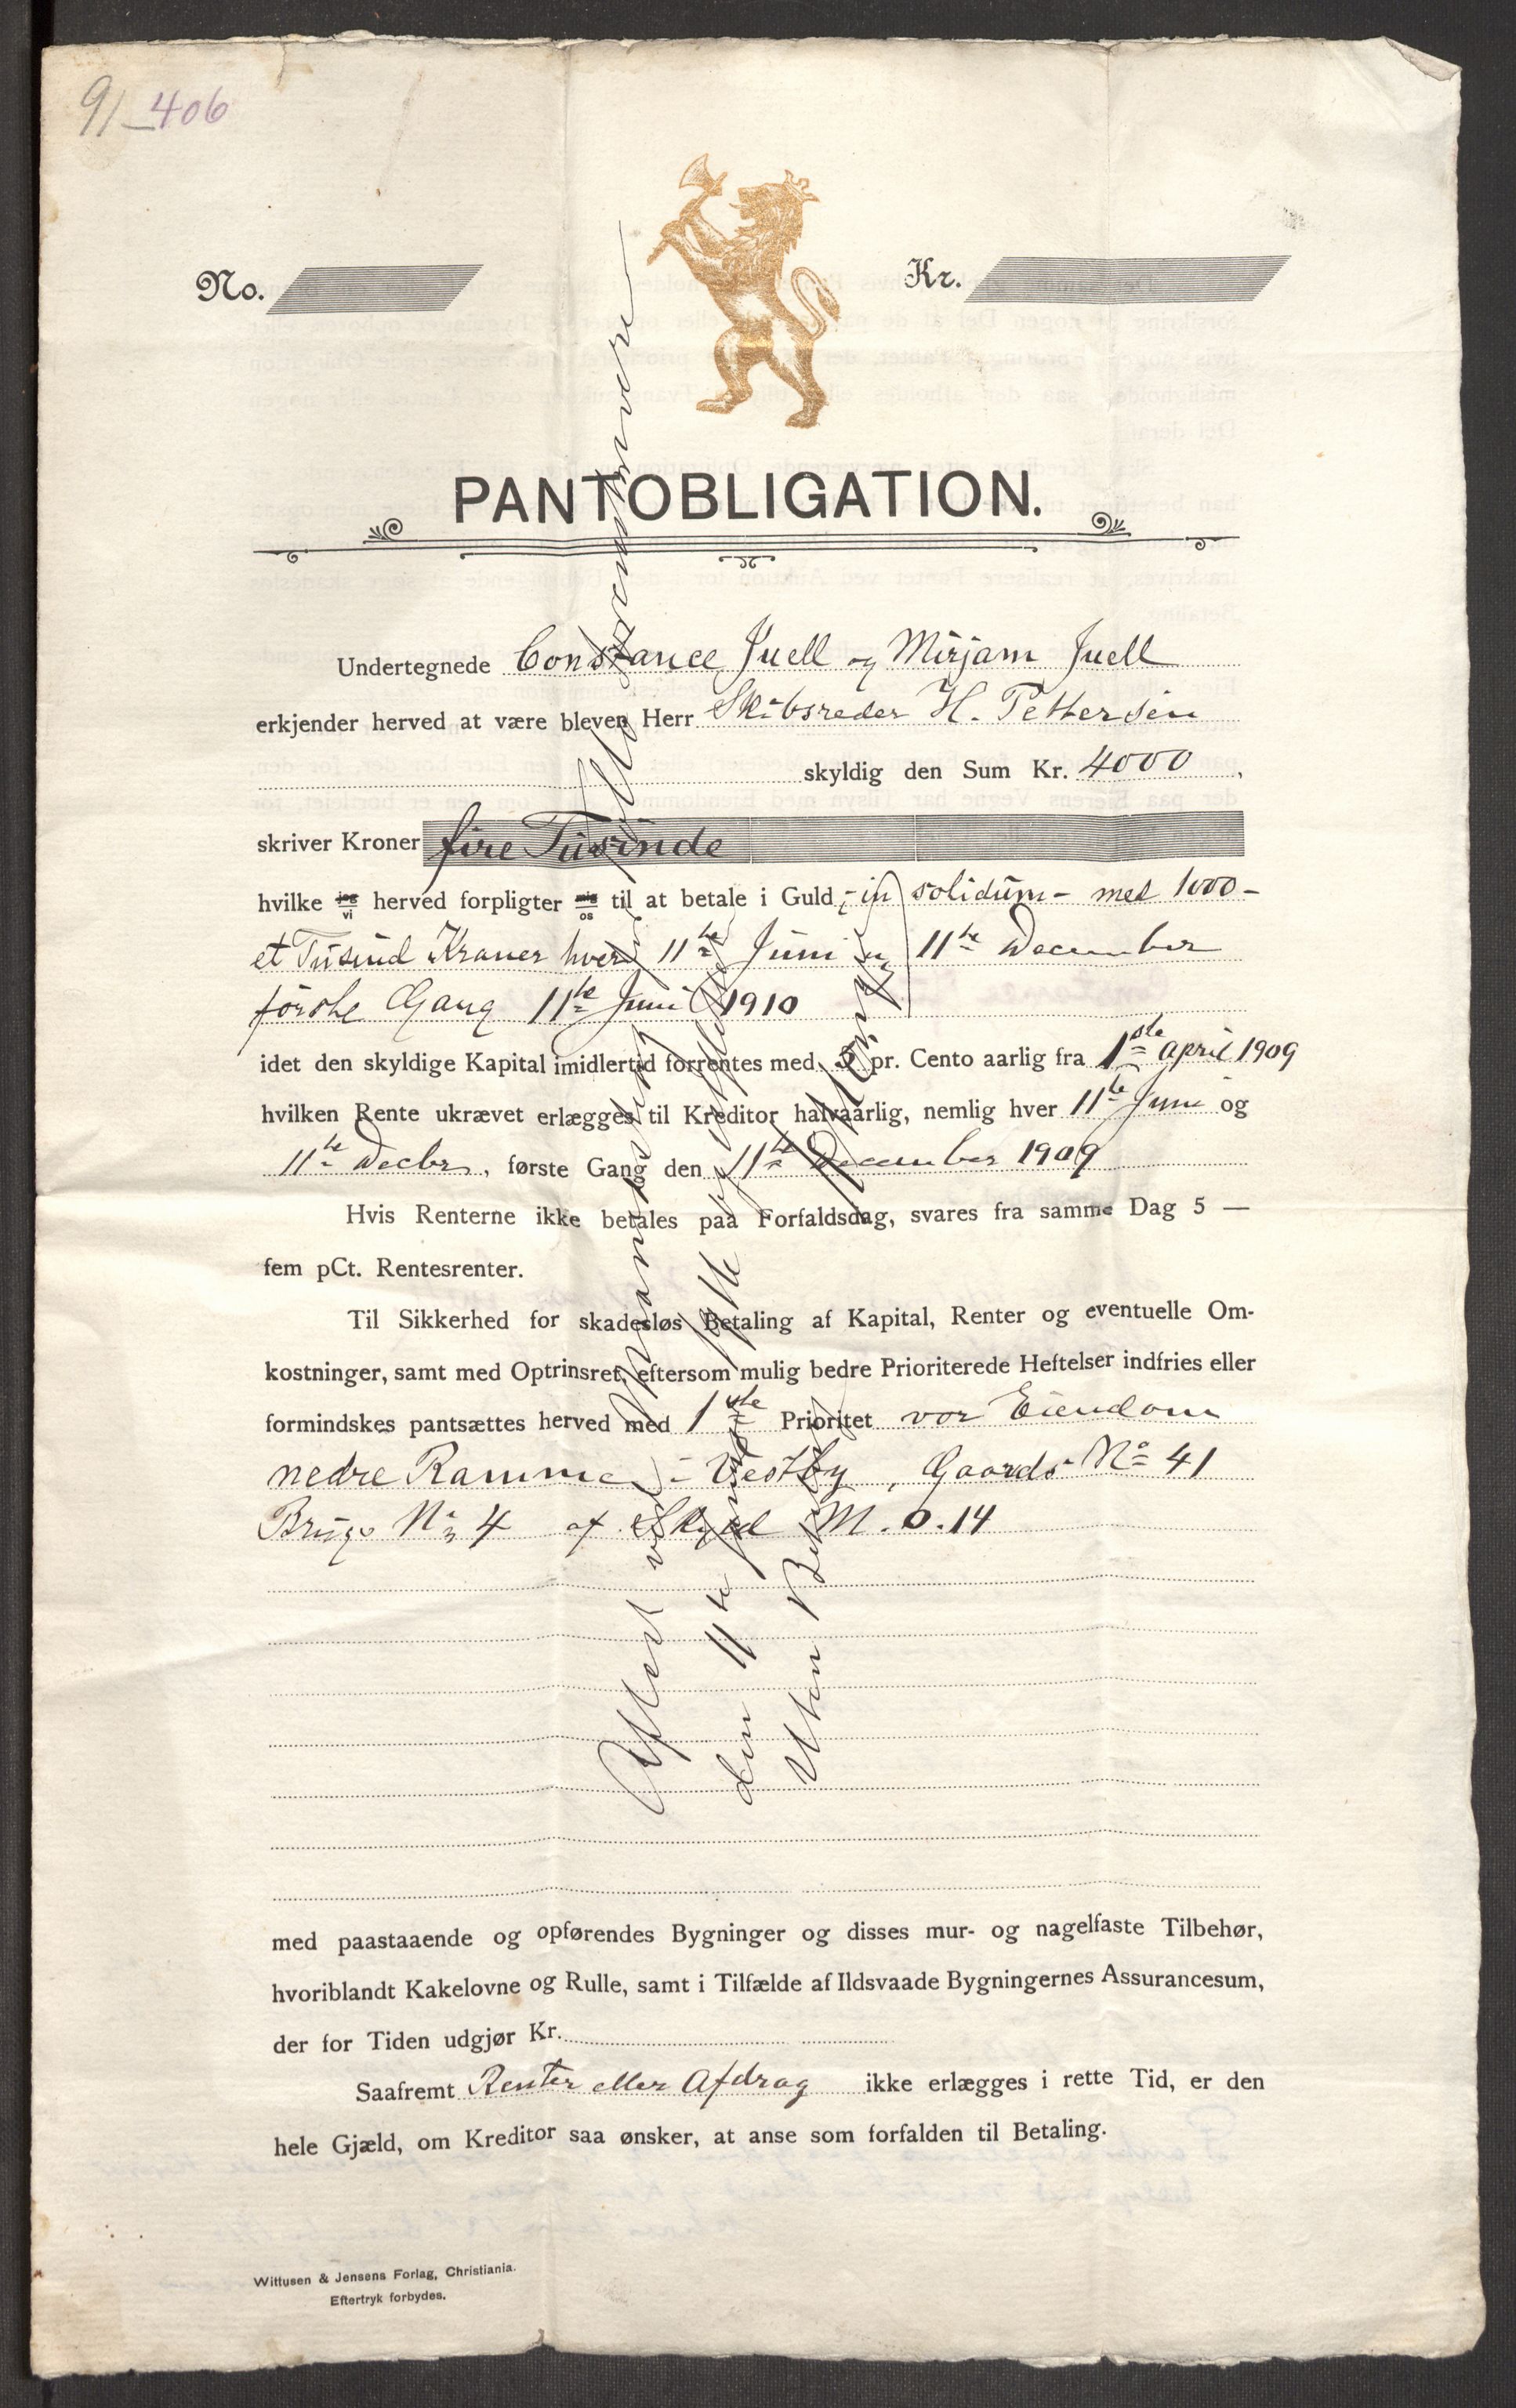 91-406
No.
Kr.
PANTOBLIGATION.
Undertegnede Constance Juell og Mirjam Juell
erkjender herved at være bleven Herr Skibsreder H. Pettersen
skyldig den Sum Kr. 4000,
skriver Kroner fire Tusinde
hvilke jeg vi herved forpligter mig os til at betale i Guld, - in solidum - med 1000 -
et Tusind Kroner hver 11te Juni og 11te December
første Gang 11te Juni 1910
idet den skyldige Kapital imidlertid forrentes med 5 pr. Cento aarlig fra 1ste April 1909
hvilken Rente ukrævet erlægges til Kreditor halvaarlig, nemlig hver 11te Juni og
11te Decbr, første Gang den 11te December 1909
Hvis Renterne ikke betales paa Forfaldsdag, svares fra samme Dag 5 —
fem pCt. Rentesrenter.
Til Sikkerhed for skadesløs Betaling af Kapital, Renter og eventuelle Om-
kostninger, samt med Optrinsret, eftersom mulig bedre Prioriterede Heftelser indfries eller
formindskes pantsættes herved med 1ste Prioritet vor Eiendom
nedre Ramme i Vestby, Gaards No 41
Brugs No 4 af Skyld M. 0.14
med paastaaende og opførendes Bygninger og disses mur- og nagelfaste Tilbehør,
hvoriblandt Kakelovne og Rulle, samt i Tilfælde af Ildsvaade Bygningernes Assurancesum,
der for Tiden udgjør Kr.
Saafremt Renter eller Afdrag ikke erlægges i rette Tid, er den
hele Gjæld, om Kreditor saa ønsker, at anse som forfalden til Betaling.
Wittusen & Jensens Forlag, Christiania.
Eftertryk forbydes.
Aflest ved
den 11te
Uten